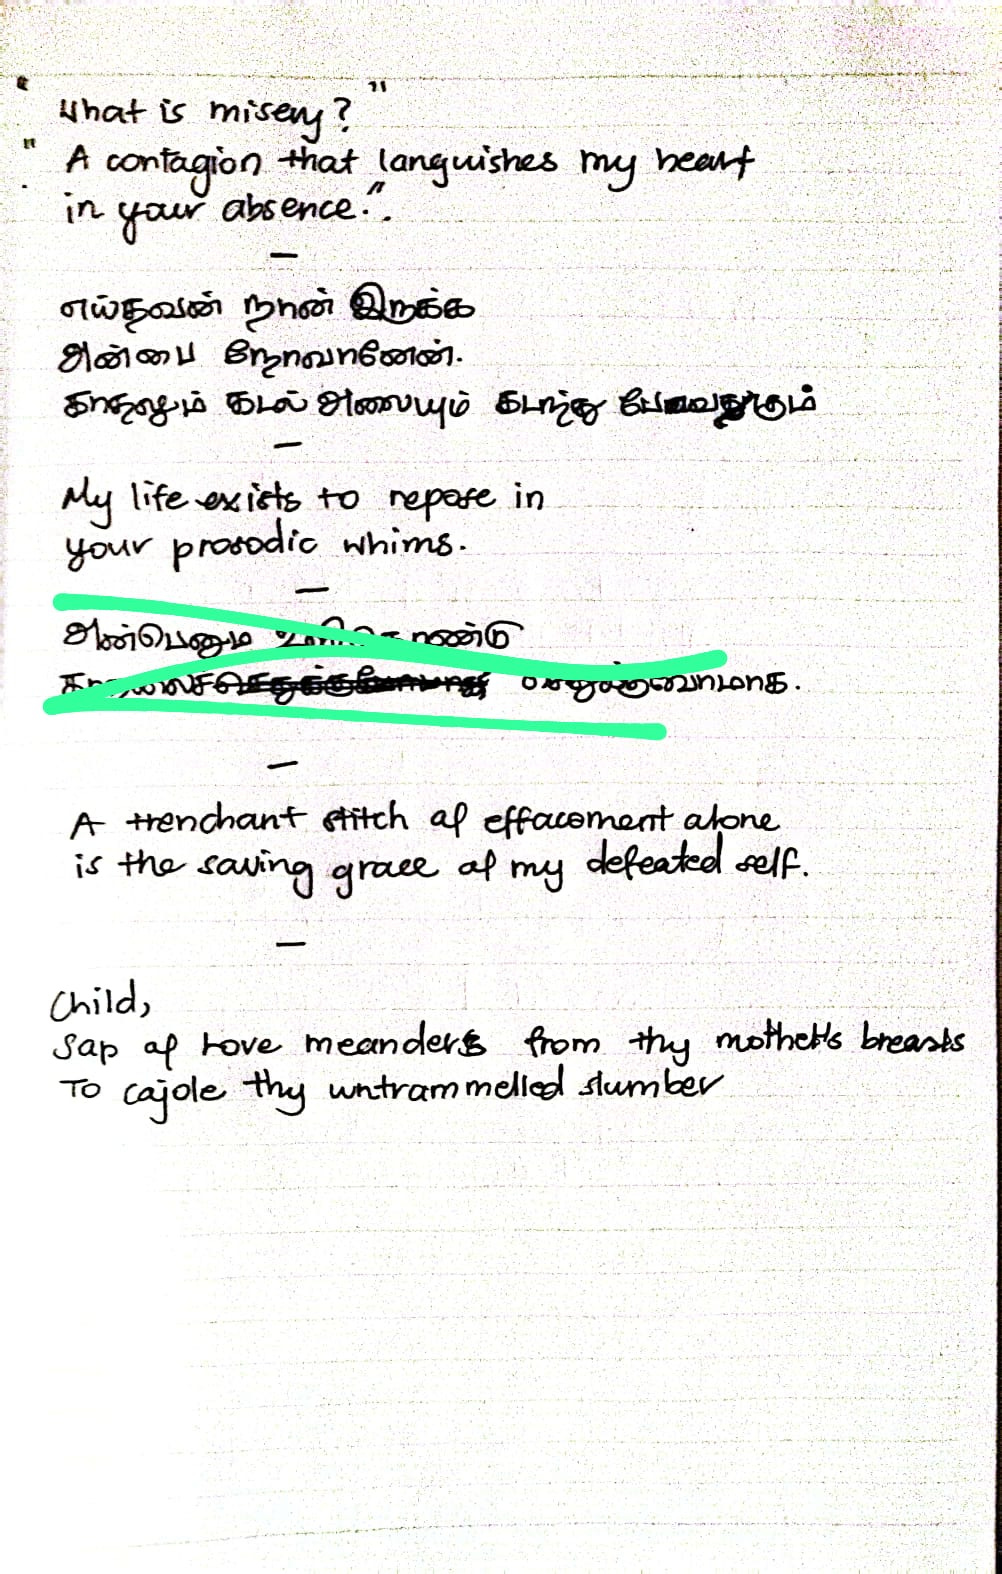 "What is misery?"
"A contagion that languishes my heart
in your absence.".
—
எய்தவன் நான் இருக்க
அன்பை நோவானேன்.
காதலும் கடல் அலையும் கடந்து
—
My life exists to repose in
your prosodic whims.
—
அன்பெனும்
—
A trenchant stitch of effacement alone
is the saving grace of my defeated self.
—
Child,
Sap of Love meanders from thy mother's breasts
To cajole thy untrammelled slumber